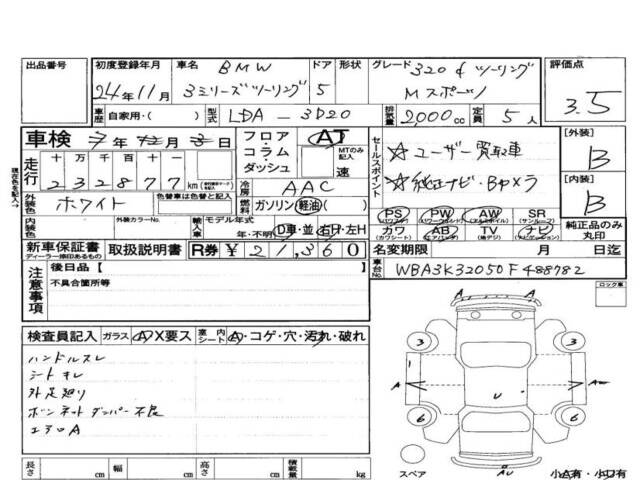 出品番号
初度登録年月
24年11月
車名 BMW
3ミリーズツーリング
ドア
5
形状
グレード 320d ツーリング
Mスポーツ
評価点
3.5
車歴 自家用・( )
型式 LDA-3D20
排気量 2,000cc
定員 5人
車検 7年12月3日
フロア・コラム・ダッシュ
AT
MTのみ記入
速
セールスポイント
☆ユーザー買取車
☆純正ナビ・Bカメラ
[外装]
B
[内装]
B
現在色を記入→
走行
十 万 千 百 十 一
2 3 2 8 7 7 km
冷房 AAC
外装色 ホワイト
色替車は色替と記入
燃料 ガソリン・軽油・( )
内装色
外装カラーNo.
輸入車
モデル年式
年・不明
D車・並
右H・左H
PS (パワステ)
PW (パワーウィンドウ)
AW (アルミホイル)
SR (サンルーフ)
カワ (カワシート)
AB (エアバッグ)
TV (地デジ)
ナビ (ナビゲーション)
純正品のみ丸印
新車保証書
ディーラー捺印あるもの
取扱説明書
R券 ¥21,360
名変期限 月 日迄
車台No. WBA3K32050F488782
注意事項
後日品【
不具合箇所等
ロック車
検査員記入
ガラス A X要ス
室内シート A・コゲ・穴・汚れ・破れ
ハンドルスレ
シートキレ
外足廻り
ボンネットダンパー不良
エアロA
A A
3 3
1
A U A
6 6
AU
スペア
小A有・小U有
長さ cm
幅 cm
高さ cm
積載量 kg